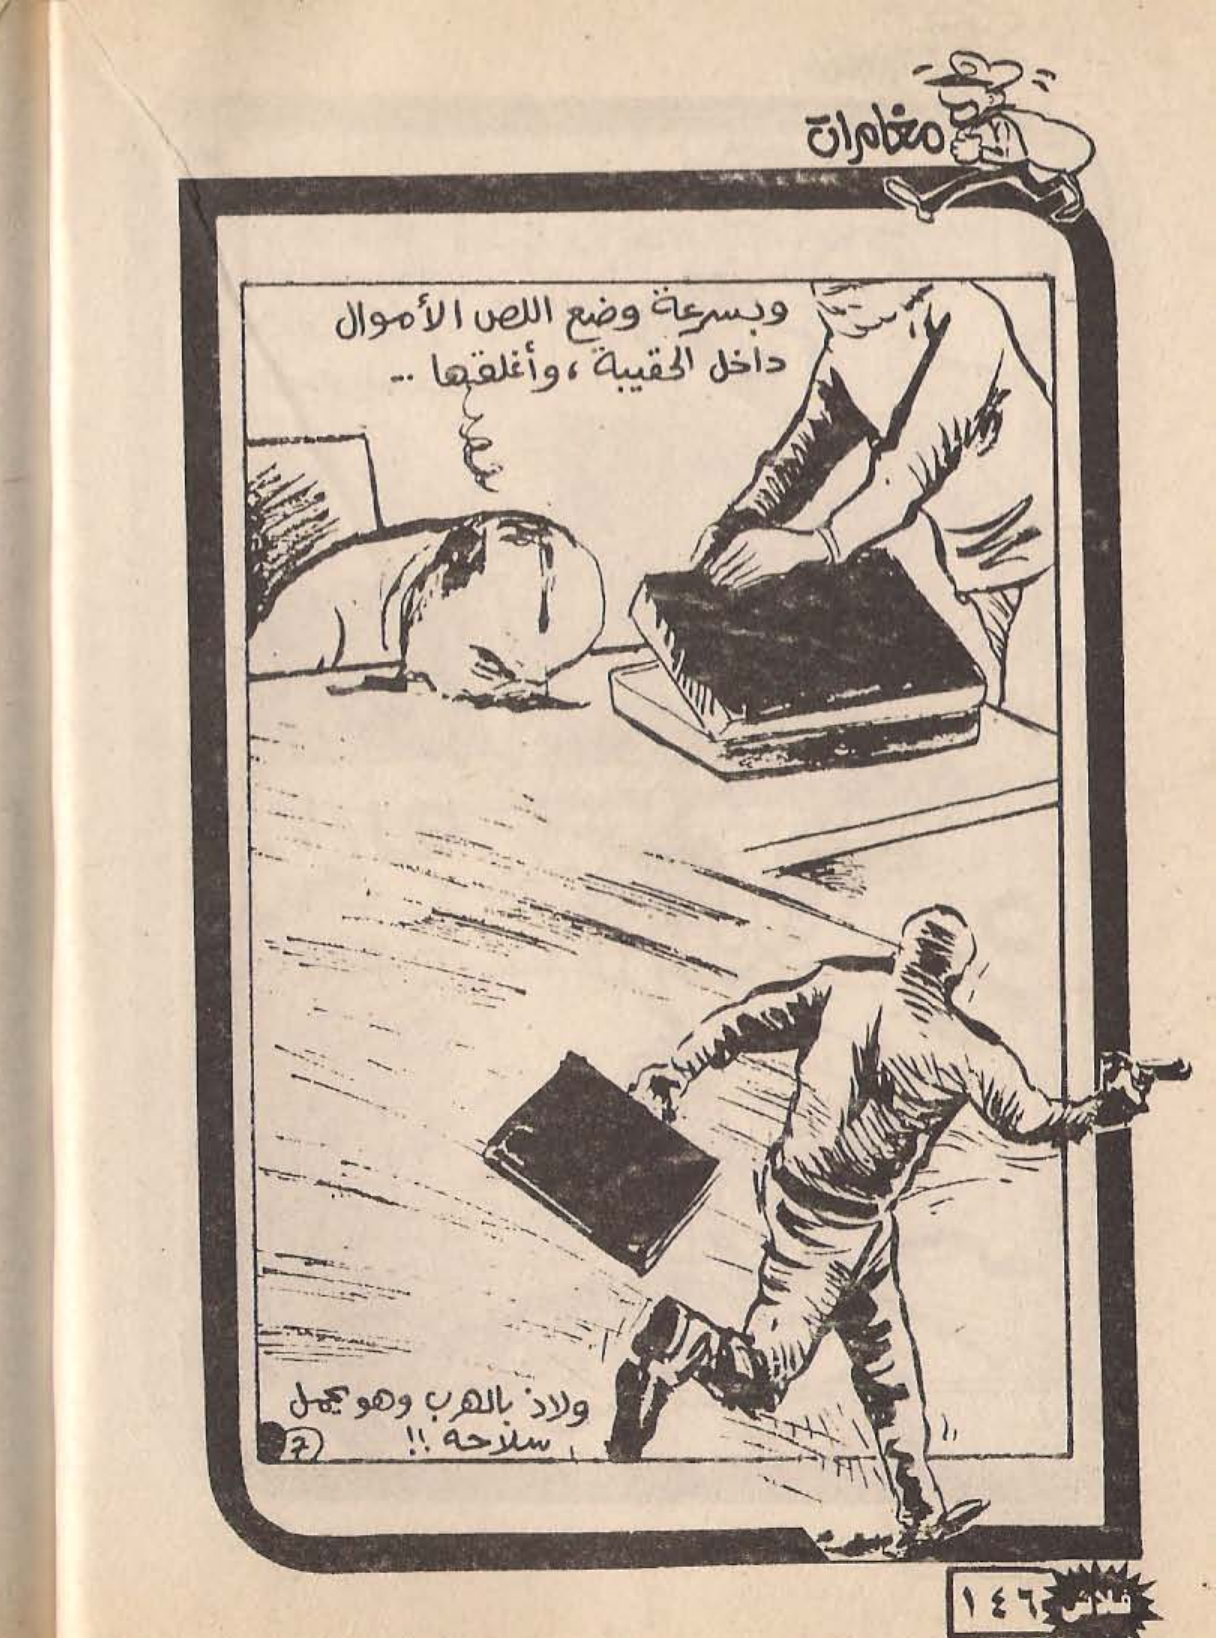 مغامرات
وبسرعة وضع اللص الأموال
داخل الحقيبة ، وأغلقها ..
ولاذ بالهرب وهو يحمل
سلاحه !!
7
فلاش ١٤٦